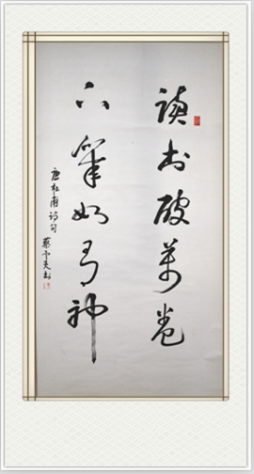 读书破万卷
下笔如有神
唐杜甫诗句